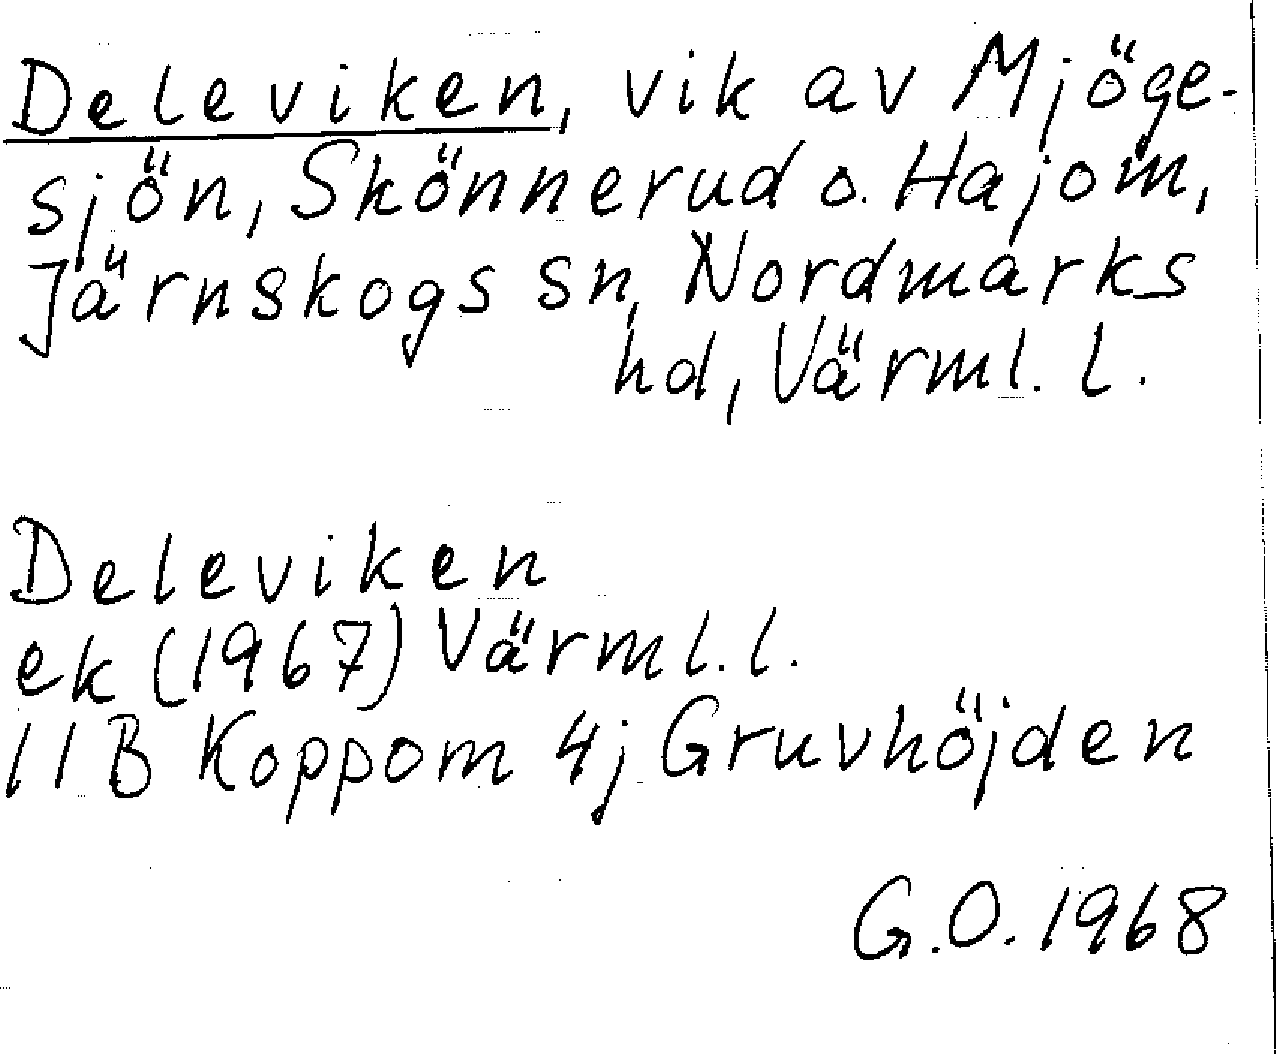 Deleviken, vik av Mjöge-
sjön, Skönnerud o. Hajom,
Järnskogs sn, Nordmarks
hd, Värml. l.
Deleviken
ek (1967) Värml. l.
11B Koppom 4j Gruvhöjden
G.O. 1968